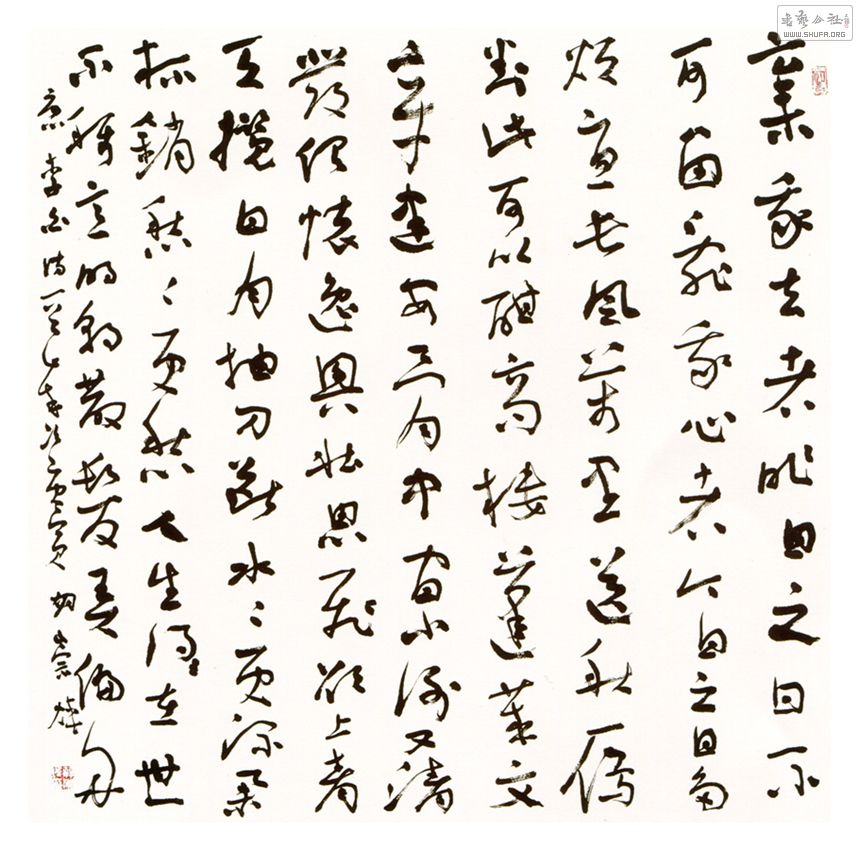 棄我去者昨日之日不
可留亂我心者今日之日多
煩憂長風萬里送秋雁
對此可以酣高樓蓬萊文
章建安骨中間小謝又清
發俱懷逸興壯思飛欲上青
天攬日月抽刀斷水水更流舉
杯銷愁愁更愁人生得在世
不稱意明朝散髮弄扁舟
李白詩一首 胡崇煒
書藝公社
WWW.SHUFA.ORG